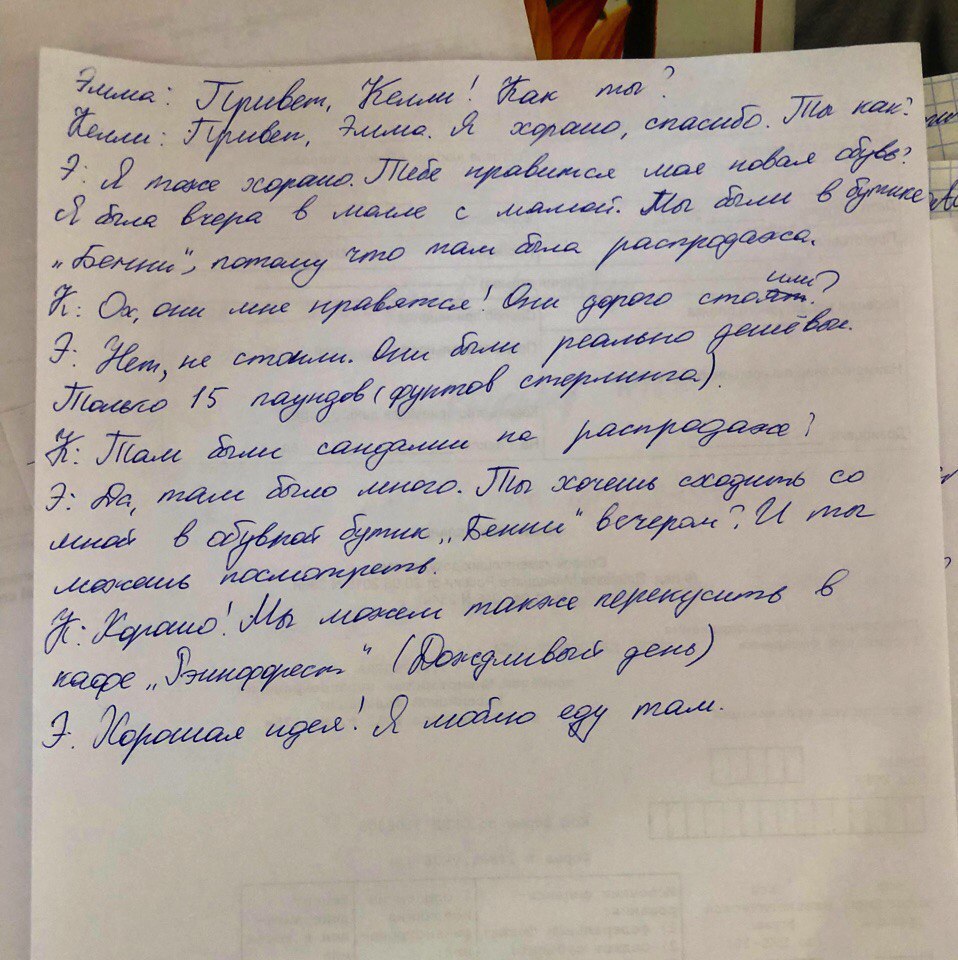 Эмма: Привет, Келли! Как ты?
Келли: Привет, Эмма. Я хорошо, спасибо. Ты как?
Э: Я тоже хорошо. Тебе нравится моя новая обувь?
Я была вчера в молле с мамой. Мы были в бутике
„Бенни", потому что там была распродажа.
К: Ох, они мне нравятся! Они дорого стоили?
Э: Нет, не стоили. Они были реально дешёвые.
Только 15 паундов (фунтов стерлинга).
К: Там были сандалии на распродаже?
Э: Да, там было много. Ты хочешь сходить со
мной в обувной бутик „Бенни" вечером? И ты
можешь посмотреть.
К: Хорошо! Мы можем также перекусить в
кафе „Рэинффрест" (Дождливый день)
Э: Хорошая идея! Я люблю еду там.